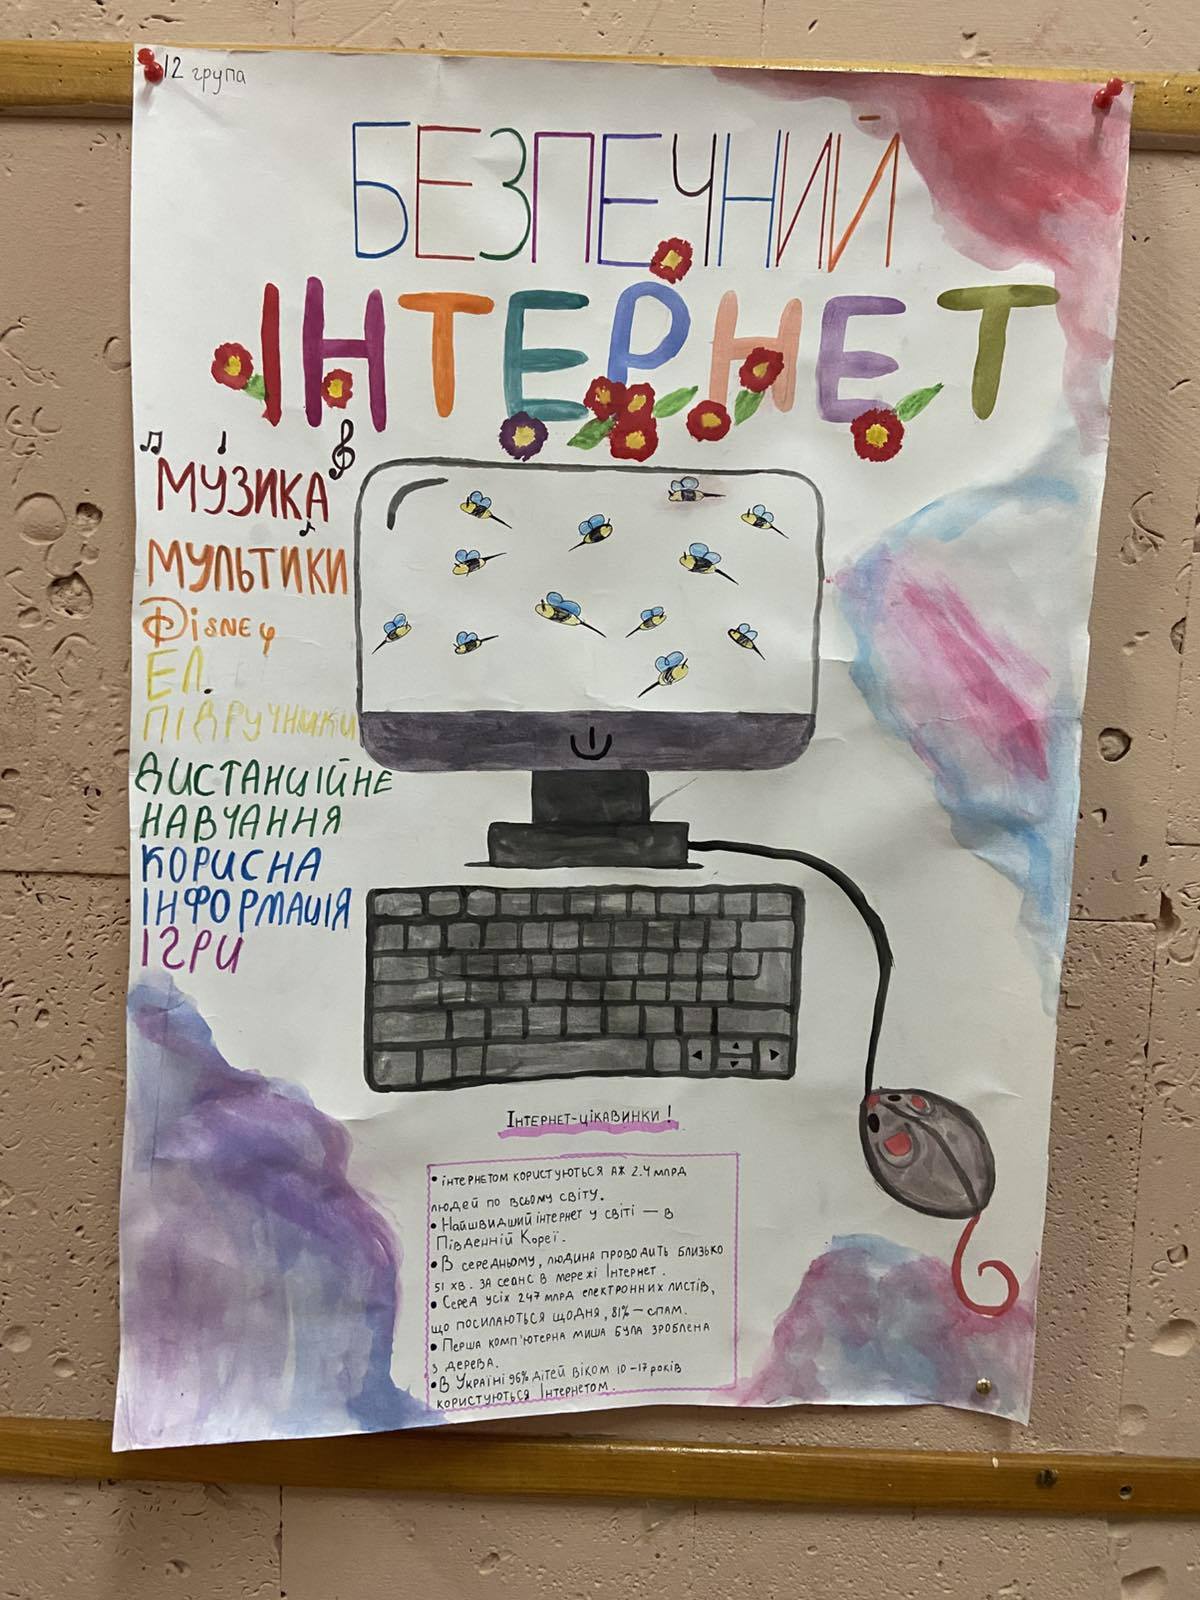 12 група
БЕЗПЕЧНИЙ
ІНТЕРНЕТ
МУЗИКА
МУЛЬТИКИ
Disney
ЕЛ.
ПІДРУЧНИКИ
ДИСТАНЦІЙНЕ
НАВЧАННЯ
КОРИСНА
ІНФОРМАЦІЯ
ІГРИ
ІНТЕРНЕТ-ЦІКАВИНКИ!
• ІНТЕРНЕТОМ КОРИСТУЮТЬСЯ АЖ 2.4 МЛРД
ЛЮДЕЙ ПО ВСЬОМУ СВІТУ.
• НАЙШВИДШИЙ ІНТЕРНЕТ У СВІТІ — В
ПІВДЕННІЙ КОРЕЇ.
• В СЕРЕДНЬОМУ, ЛЮДИНА ПРОВОДИТЬ БЛИЗЬКО
51 ХВ. ЗА СЕАНС В МЕРЕЖІ ІНТЕРНЕТ.
• СЕРЕД УСІХ 247 МЛРД ЕЛЕКТРОННИХ ЛИСТІВ,
ЩО ПОСИЛАЮТЬСЯ ЩОДНЯ, 81% — СПАМ.
• ПЕРША КОМП'ЮТЕРНА МИША БУЛА ЗРОБЛЕНА
З ДЕРЕВА.
• В УКРАЇНІ 96% ДІТЕЙ ВІКОМ 10-17 РОКІВ
КОРИСТУЮТЬСЯ ІНТЕРНЕТОМ.